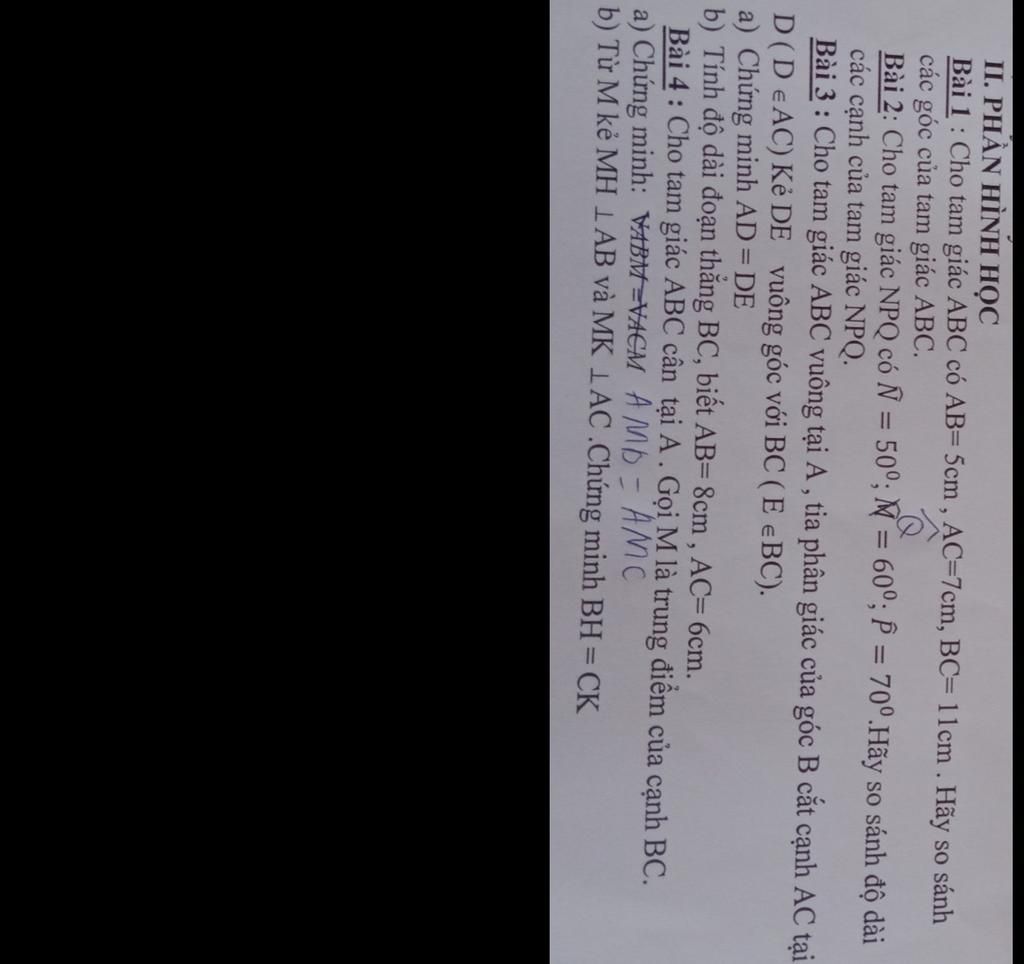 II. PHẦN HÌNH HỌC
Bài 1 : Cho tam giác ABC có AB= 5cm , AC=7cm, BC= 11cm . Hãy so sánh
các góc của tam giác ABC.
Bài 2: Cho tam giác NPQ có N̂ = 50⁰; M̂ Q̂ = 60⁰; P̂ = 70⁰.Hãy so sánh độ dài
các cạnh của tam giác NPQ.
Bài 3 : Cho tam giác ABC vuông tại A , tia phân giác của góc B cắt cạnh AC tại
D ( D ∈ AC) Kẻ DE vuông góc với BC ( E ∈ BC).
a) Chứng minh AD = DE
b) Tính độ dài đoạn thẳng BC, biết AB= 8cm , AC= 6cm.
Bài 4 : Cho tam giác ABC cân tại A . Gọi M là trung điểm của cạnh BC.
a) Chứng minh: VABM = VACM AMb = AMC
b) Từ M kẻ MH ⊥ AB và MK ⊥ AC .Chứng minh BH = CK